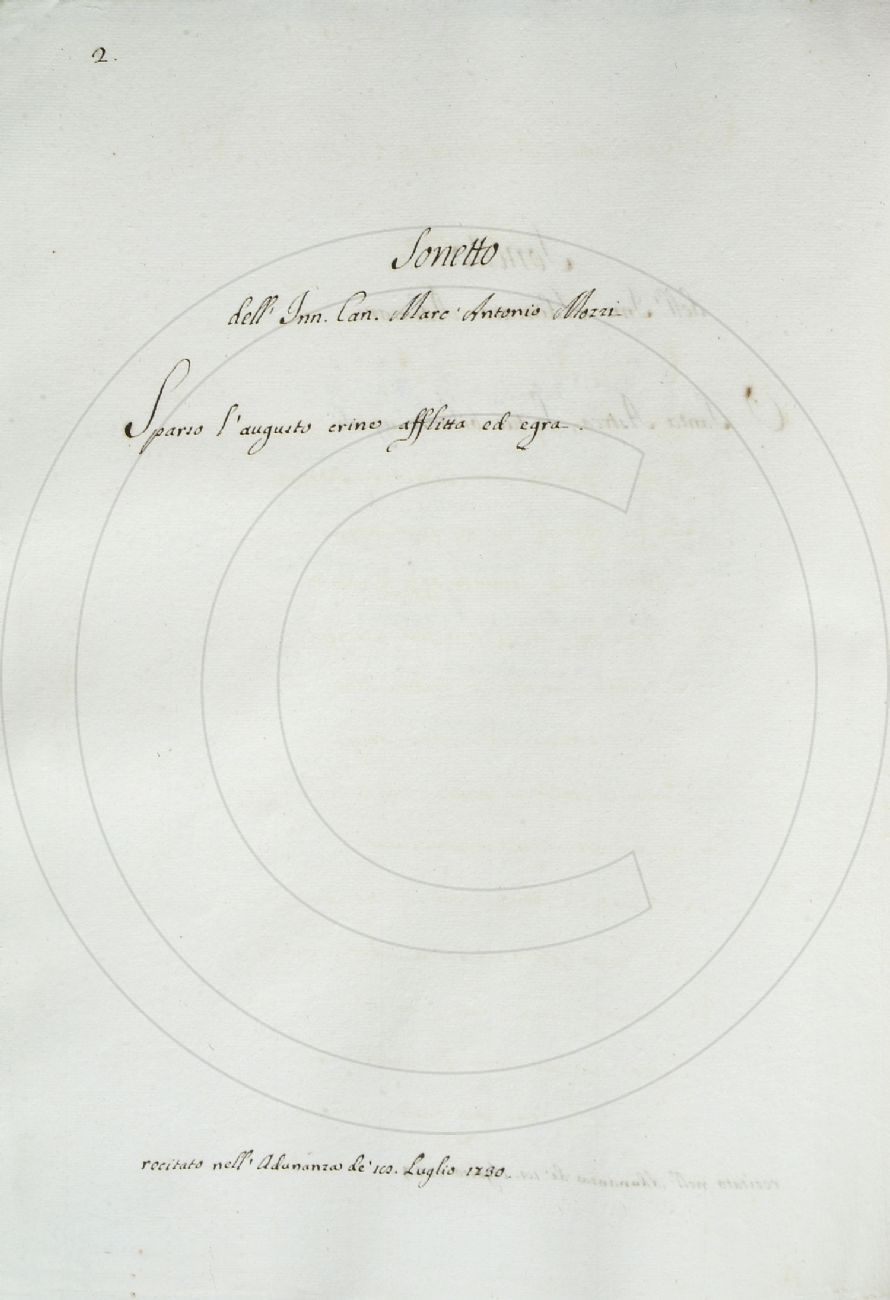 2.
Sonetto
dell' Inn. Can. Marc' Antonio Mozzi
Sparso l'augusto crine afflitta ed egra.
recitato nell' Adunanza de' Luglio